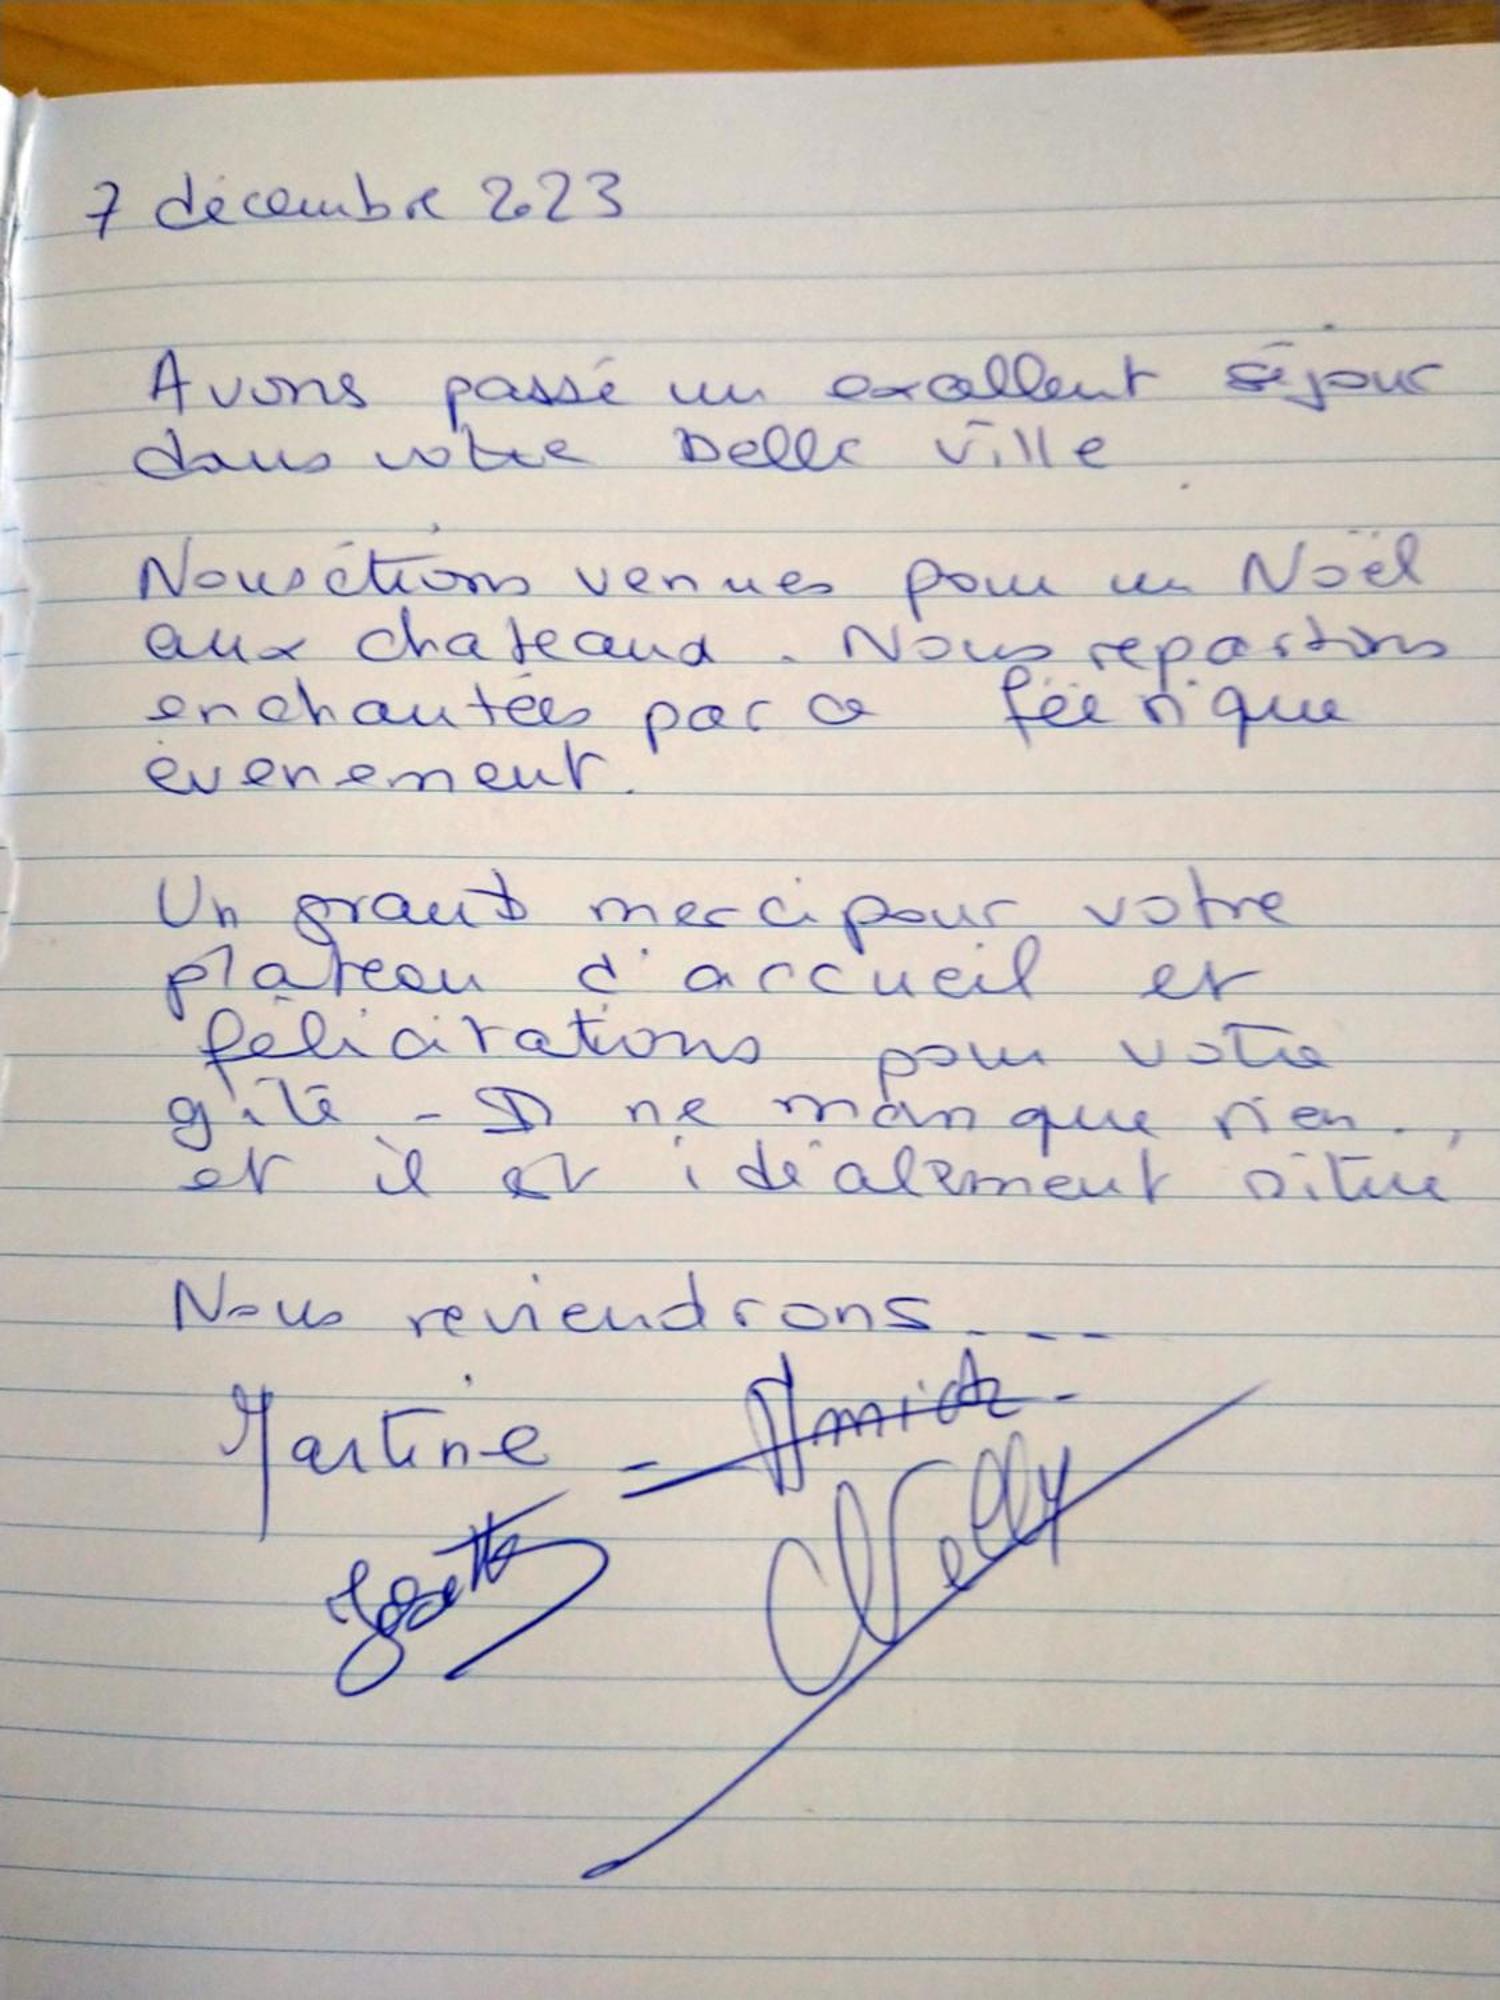 7 décembre 2023
Avons passé un excellent séjour
dans votre belle ville
Nous étions venues pour un Noël
aux chateaux. Nous repartons
enchantées par ce féerique
évenement.
Un grand merci pour votre
plateau d'accueil et
félicitations pour votre
gîte - Il ne manque rien.
et il est idéalement situé
Nous reviendrons....
Martine - Annick
Nelly